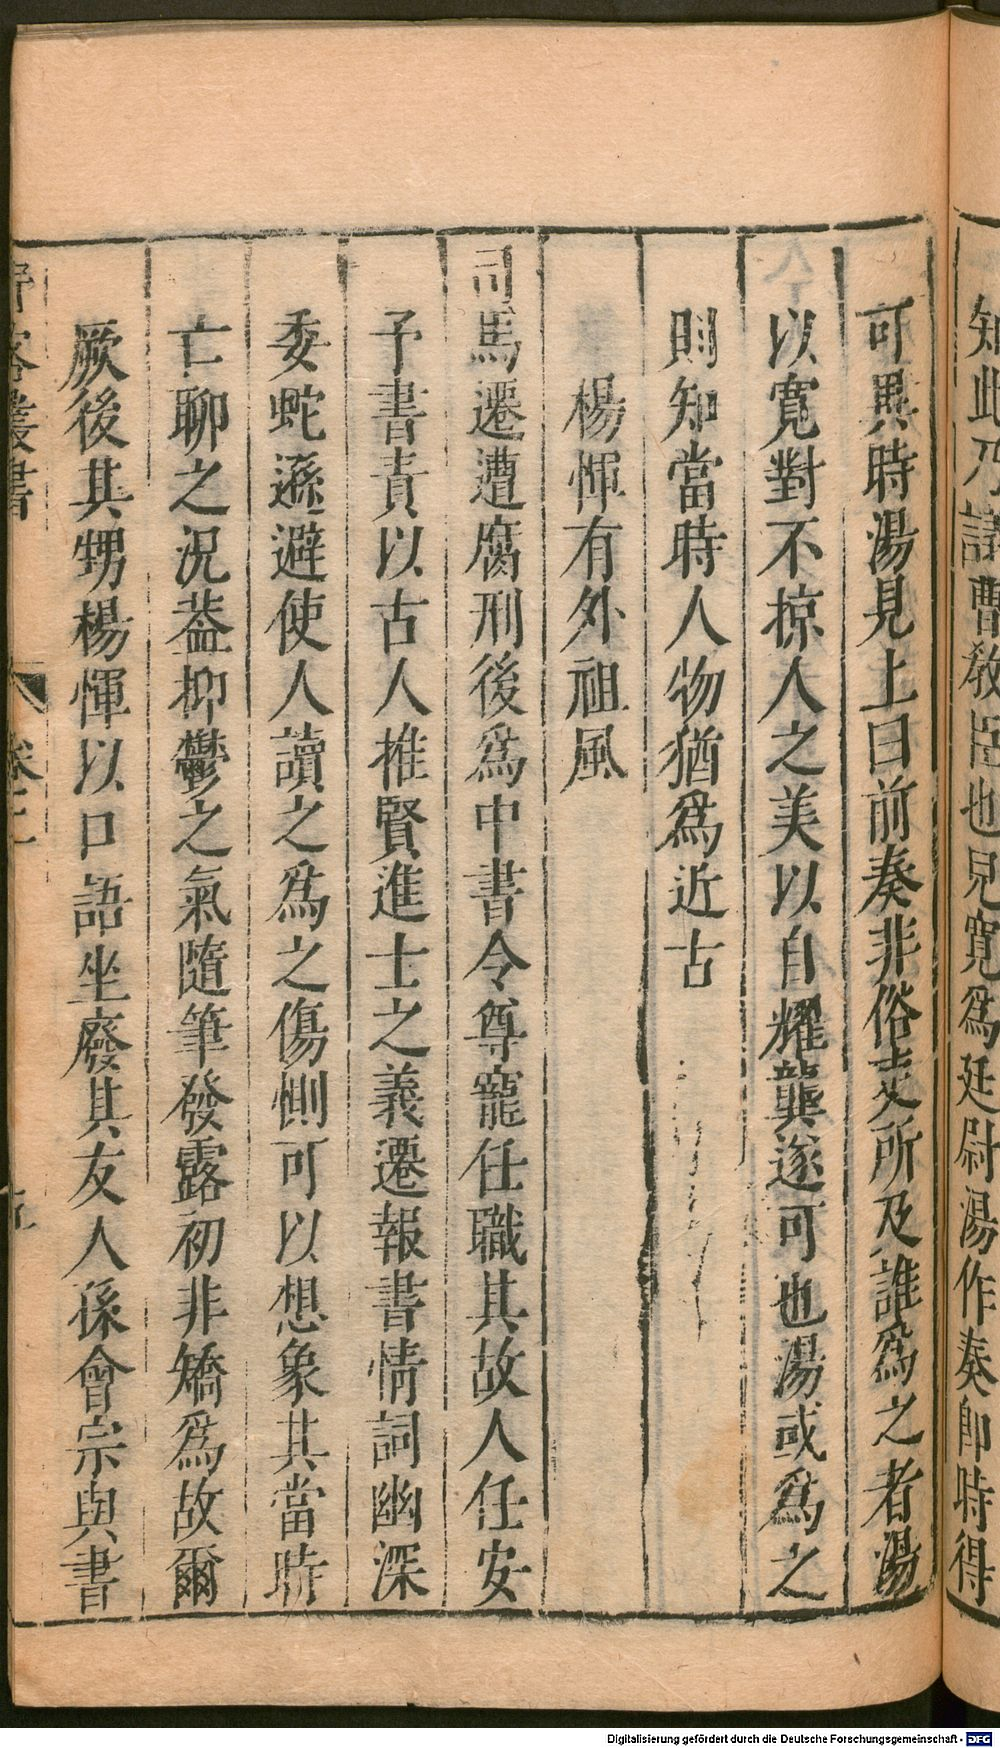 知此乃讞曹敎臣也兒寛爲廷尉湯作奏卽時得
可異時湯見上曰前奏非俗吏所及誰爲之者湯
以寛對不掠人之美以自耀龔遂可也湯或爲之
則知當時人物猶爲近古
楊惲有外祖風
司馬遷遭腐刑後爲中書令尊寵任職其故人任安
予書責以古人推賢進士之義遷報書情詞幽深
委蛇遜避使人讀之爲之傷惻可以想象其當時
亡聊之況葢抑鬱之氣隨筆發露初非矯爲故爾
厥後其甥楊惲以口語坐廢其友人孫會宗與書
野客叢書 卷二
Digitalisierung gefördert durch die Deutsche Forschungsgemeinschaft - DFG